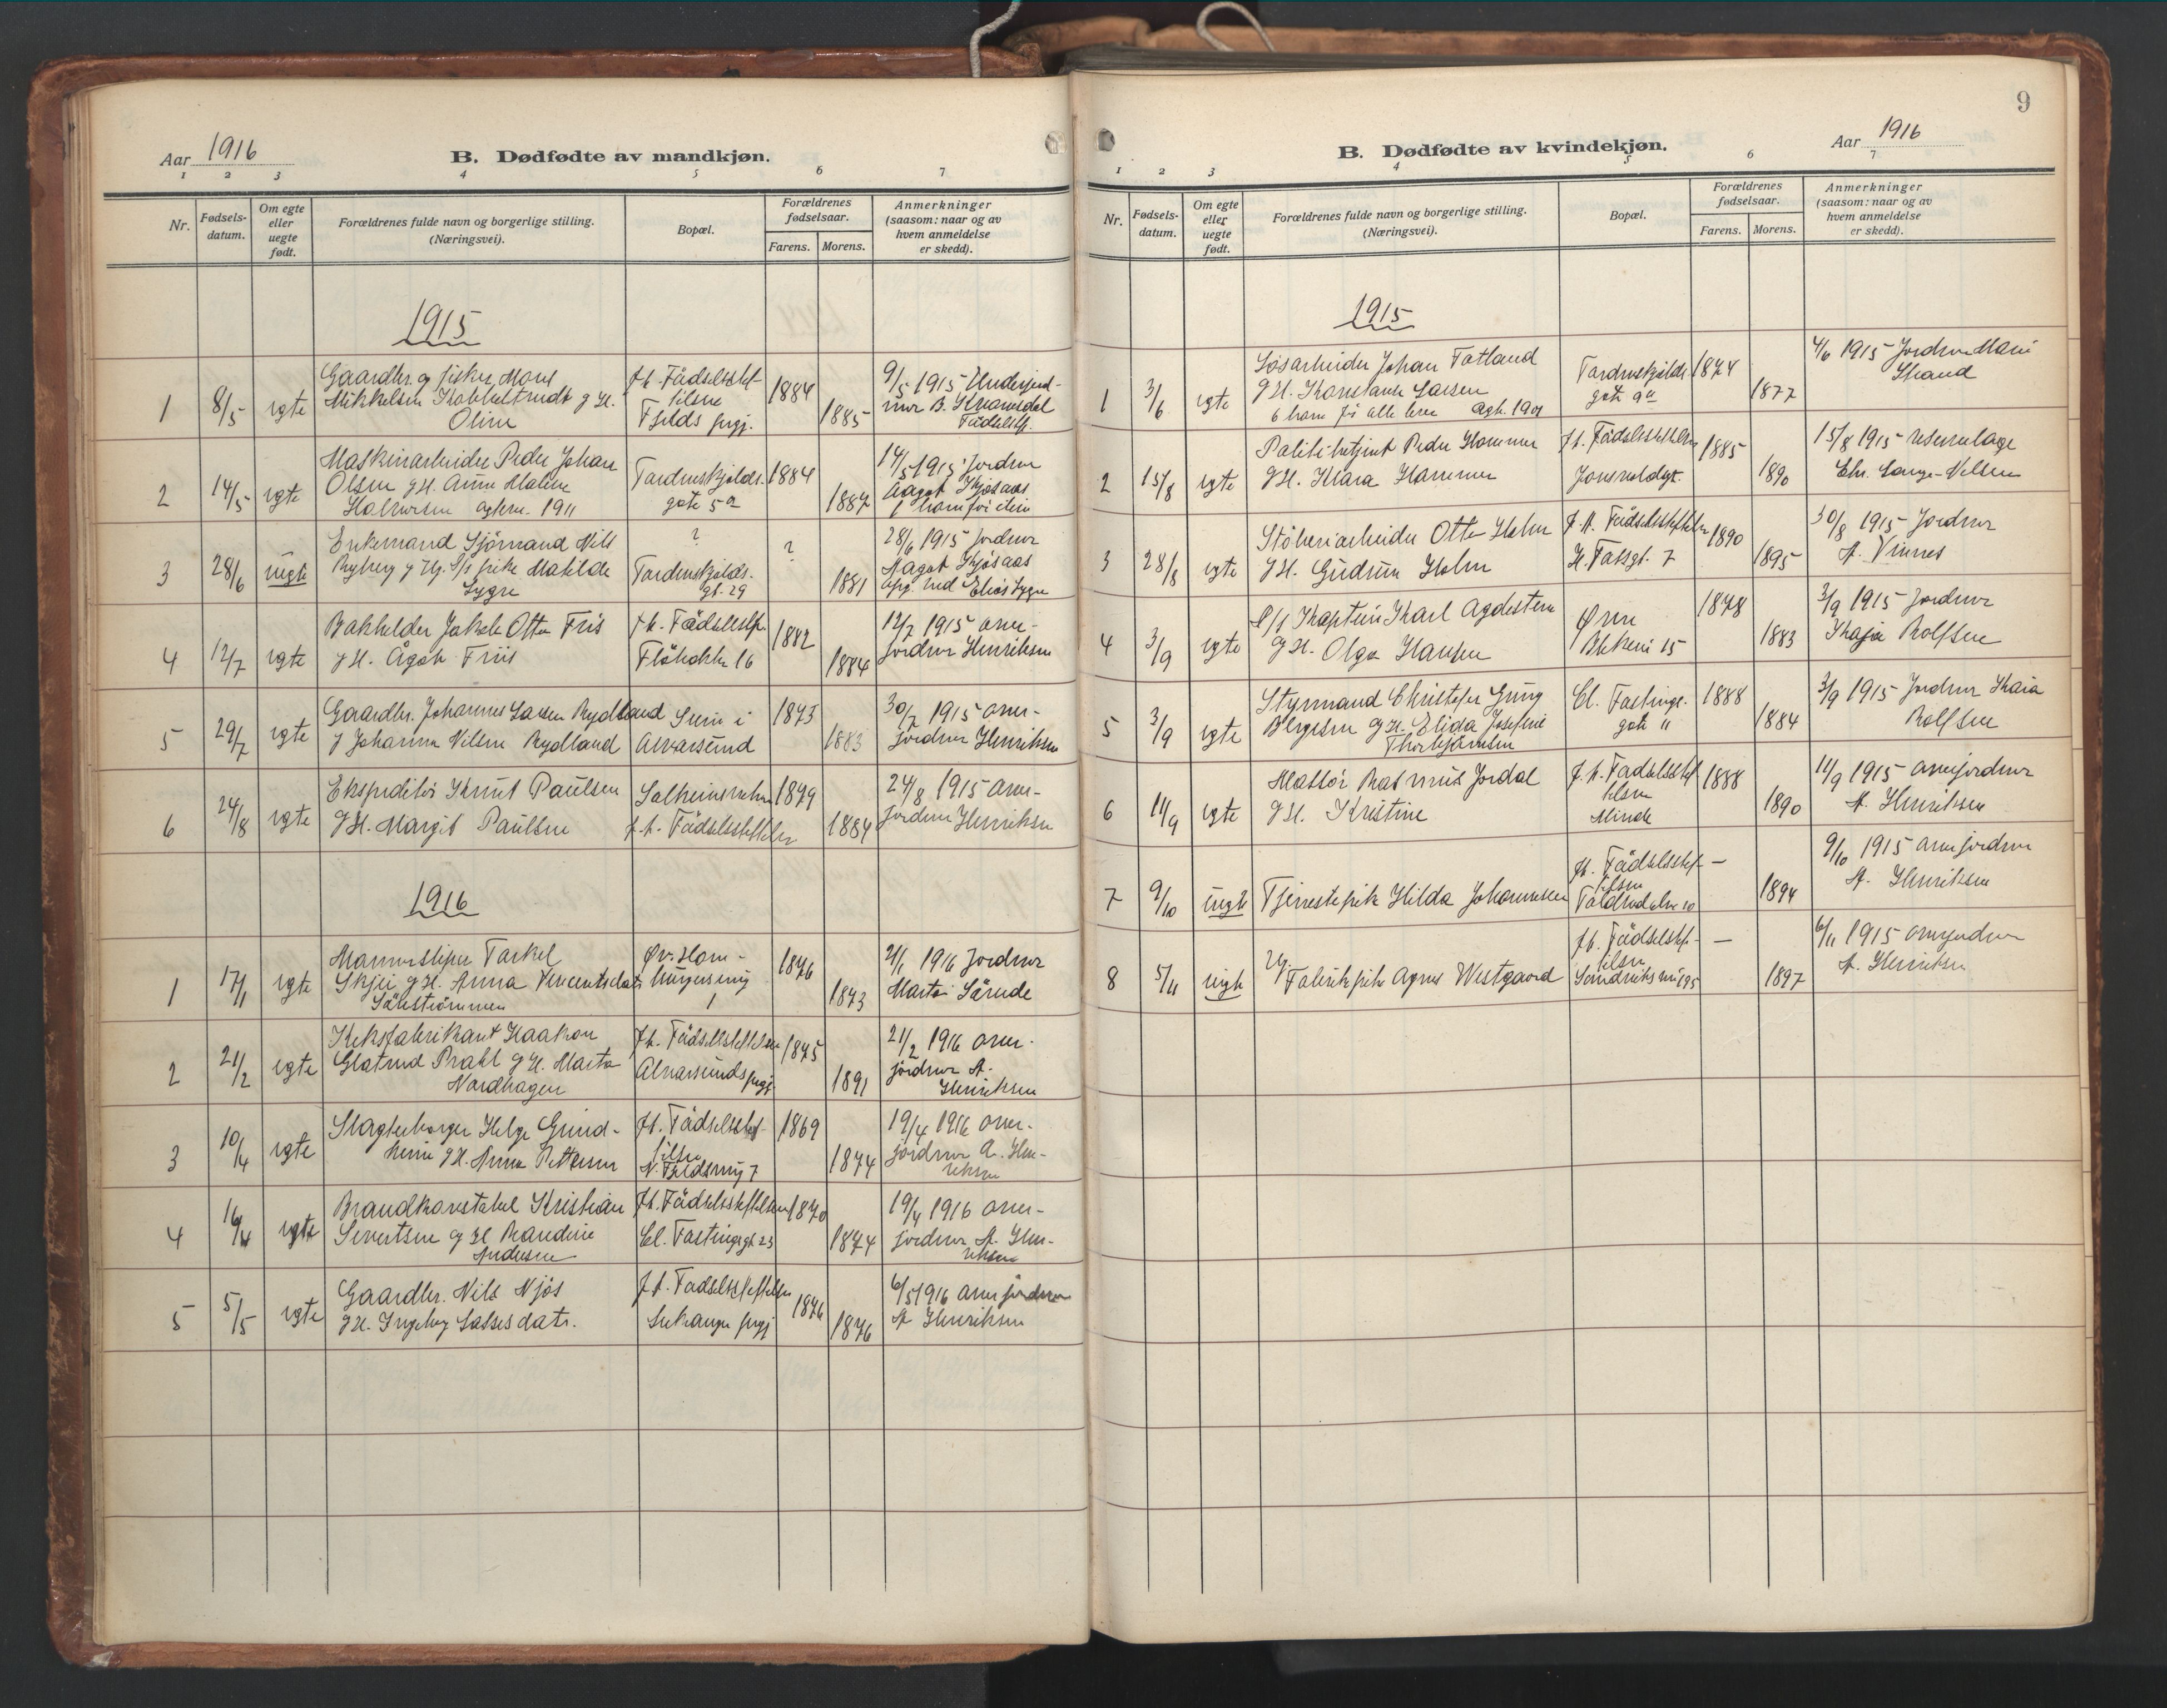 Aar 1916
B. Dødfødte av mandkjøn.
1 2 3 4 5 6 7
Nr.
Fødsels-
datum.
Om egte
eller
uegte
født.
Forældrenes fulde navn og borgerlige stilling.
(Næringsvei).
Bopæl.
Forældrenes
fødselsaar.
Farens. Morens.
Anmerkninger
(saasom: naar og av
hvem anmeldelse
er skedd).
1915
1 8/5 egte
Gaardbr. og fisker Mons
Mikkelsen g H.
Oline
Fjelds prgj.
1884
1885
9/5 1915 Underjord-
mor B. Kvamsdal
Fødselsst.
2 14/5 egte
Maskinarbeider Peder Johan
Olsen g H. Anne Maline
Halvorsen 1911
Tordenskjolds-
gate 5a
1884
1887
14/5 1915 Jordmor
Aagot Skjøsaas
3 28/6 uegte
Enkemand Sjømand Nils
Ryberg pike Matilde
Sygre
?
Tordenskjolds-
gt. 29
?
1881
28/6 1915 Jordmor
Aagot Skjøsaas
4 12/7 egte
Bokholder Jakob Otto Friis
g H. Ågot Friis
Fløibakken 16
1882
1884
12/7 1915 over-
jordmor Henriksen
5 29/7 egte
Gaardbr. Johannes Larsen Rydland
g Johanna Nilsen Rydland
Seim i
Alvarsund
1873
1883
30/7 1915 over-
jordmor Henriksen
6 24/8 egte
Ekspeditør Knut Paulsen
g H. Margit Paulsen
Solheimsveien
f. t. Fødselsstiftelsen
1879
1884
24/8 1915 over-
jordmor Henriksen
1916
1 17/1 egte
Marmorsliper Torkel
Skjei g H. Anna Vincentsdatr
Sælestrømmen
1
1876
1873
2/1 1916 Jordmor
Marta Sørude
2 21/2 egte
Keksfabrikant Haakon
Prahl g H. Marta
Nordhagen
f. t. Fødselsstiftelsen
Alvarsunds prgj
1875
1891
21/2 1916 over-
jordmor A.
Henriksen
3 10/4 egte
Slagterborger Helge Grind-
heim g H. Anna Pettersen
f. t. Fødselsstif-
telsen
7
1869
1874
19/4 1916 over-
jordmor A. Hen-
riksen
4 16/4 egte
Brandkonstabel Kristian
Sivertsen og H Randine
Andersen
f. t. Fødselsstiftelsen
Cl. Fastingsgt 23
1870
1874
19/4 1916 over-
jordmor A. Hen-
riksen
5 5/5 egte
Gaardbr. Nils Njøs
g H. Ingeborg Lassesdatr.
f. t. Fødselsstiftelsen
Leikanger prgj
1876
1876
6/5 1916 overjordmor
A Henriksen
9
Aar 1916
B. Dødfødte av kvindekjøn.
1 2 3 4 5 6 7
Nr.
Fødsels-
datum.
Om egte
eller
uegte
født.
Forældrenes fulde navn og borgerlige stilling.
(Næringsvei).
Bopæl.
Forældrenes
fødselsaar.
Farens. Morens.
Anmerkninger
(saasom: naar og av
hvem anmeldelse
er skedd).
1915
1 3/6 egte
Løsarbeider Johan Totland
g H. Konstanse Larsen
6 barn før alle lever
Tordenskjolds
gate 9a
1874
1877
4/6 1915 Jordmor Marie
Strand
2 15/8 egte
Politibetjent Peder Hammer
g H. Klara Hammer
f. t. Fødselsstiftelsen
Jonsvoldgt.
1885
1890
15/8 1915 reservelæge
Chr. Lange-Nilsen
3 28/8 egte
Støberiarbeider Otto Holm
g H. Gudrun Holm
f. t. Fødselsstiftelsen
7
1890
1895
30/8 1915 Jordmor
A. Vinnes
4 3/9 egte
S/s Kaptein Karl Agdesteen
g H. Olga Hansen
Øvre
Blekevei 15
1878
1883
3/9 1915 Jordmor
Kaja Rolfsen
5 3/9 egte
Styrmand Christofer Gring
Bergesen g H. Elida Josefine
Thorbjørnsen
Cl. Fastings-
gate 11
1888
1884
3/9 1915 Jordmor Kaia
Rolfsen
6 11/9 egte
Massør Rasmus Jordal
g H. Kristine
f. t. Fødselsstif-
telsen
Minde
1888
1890
11/9 1915 overjordmor
A. Henriksen
7 9/10 uegte
Tjenestepike Hilda Johannesen
f. t. Fødselsstif-
telsen
Toldbodalm 10
—
1894
9/10 1915 overjordmor
A. Henriksen
8 5/11 uegte
Ug.
Fabrikpike Agnes Westgaard
f. t. Fødselsstif-
telsen
Sandviksvei 95
—
1897
6/11 1915 overjordmor
A. Henriksen